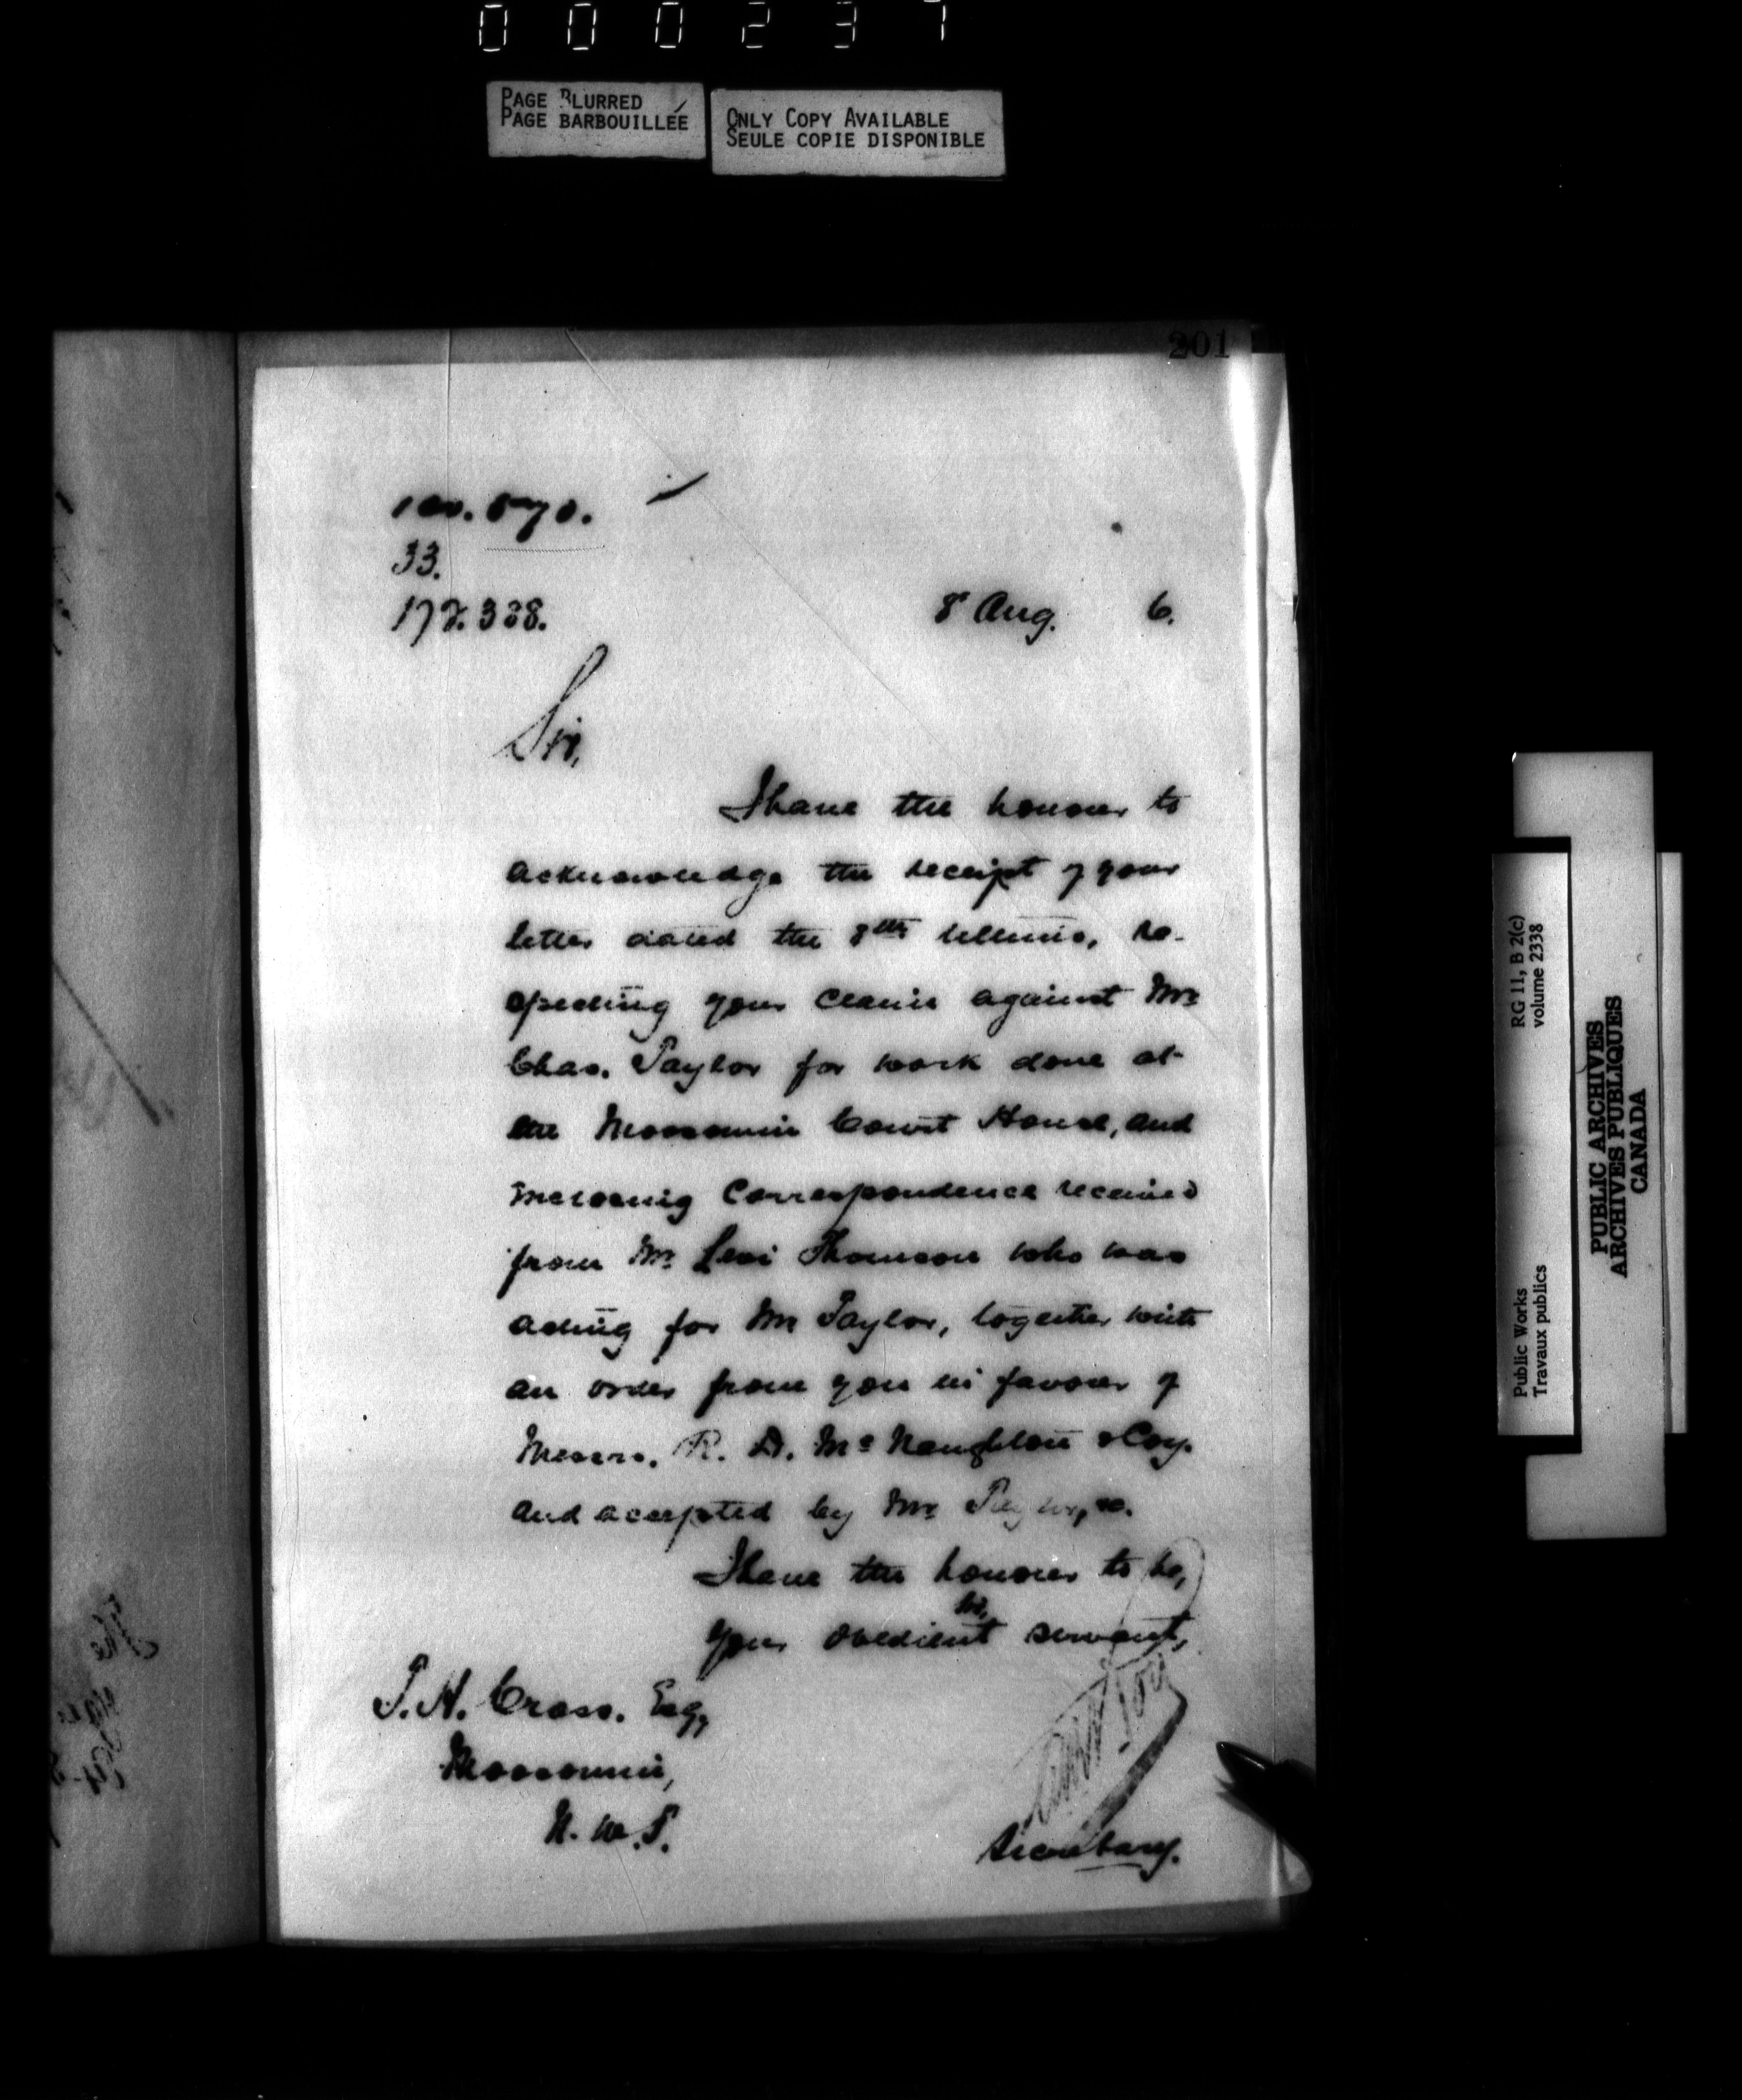 000237
PAGE BLURRED
PAGE BARBOUILLÉE
ONLY COPY AVAILABLE
SEULE COPIE DISPONIBLE
201
33.
172.338.
8 Aug. 6.
Sir,
I have the honour to
acknowledge the receipt of your
letter dated the 8th ultimo, re-
specting your claim against Mr
Chas. Taylor for work done at
the Moosomin Court House, and
inclosing correspondence received
from Mr Levi Thomson who was
acting for Mr Taylor, together with
an order from you in favour of
Messrs. R. D. McNaughton & Coy.
and accepted by Mr Taylor, &c.
I have the honour to be,
Sir,
Your obedient servant,
Secretary.
T. H. Cross. Esq,
Moosomin,
N. W. T.
RG 11, B 2(c)
volume 2338
Public Works
Travaux publics
PUBLIC ARCHIVES
ARCHIVES PUBLIQUES
CANADA